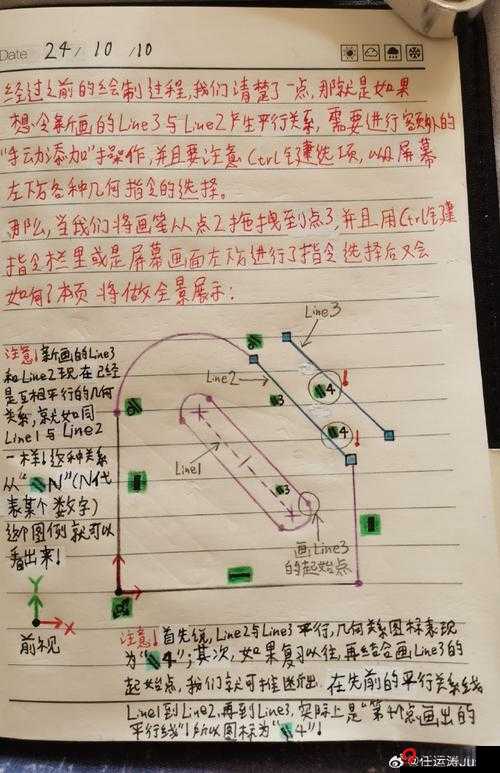 Date 24/10/10
经过之前的绘制过程,我们清楚了一点,那就是如果
想令新画的Line3与Line2产生平行关系,需要进行额外的
"手动添加"操作,并且要注意Ctrl键选项,以及屏幕
左下方各种几何指令的选择。
那么,当我们将画笔从点2拖拽到点3,并且用Ctrl键
指令栏里或是屏幕画面左下方进行了指令选择后又会
如何?本页将做全景展示:
注意!新画的Line3
和Line2现在已经
是互相平行的几何
关系,就如同
Line1与Line2
一样!这种关系
从"N"(N代
表某个数字)
这个图例就可以
看出来!
Line3
Line2
3
4
4
Line1
3
画Line3
的起始点
Y
X
前视
注意!首先说,Line2与Line3平行,几何关系图标表现
为"4";其次,如果复习以往,再结合画Line3的
起始点,我们就可推断出,在先前的平行关系线
Line1到Line2,再到Line3,实际上是"第4个点画出的
平行线"!所以图标为"4"!
@任运涛Jun